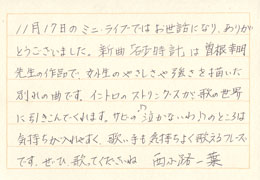 11月17日のミニ・ライブではお世話になり、ありが
とうございました。新曲「砂時計」は 曽根幸明
先生の作品で、女性のやさしさや強さを描いた
別れの曲です。イントロのストリングスが歌の世界
に引きこんでくれます。サビの「泣かないわ♪」のところは
気持ちが入れやすく、歌い手も気持ちよく歌えるフレーズ
です。ぜひ歌ってくださいね 西小路一葉